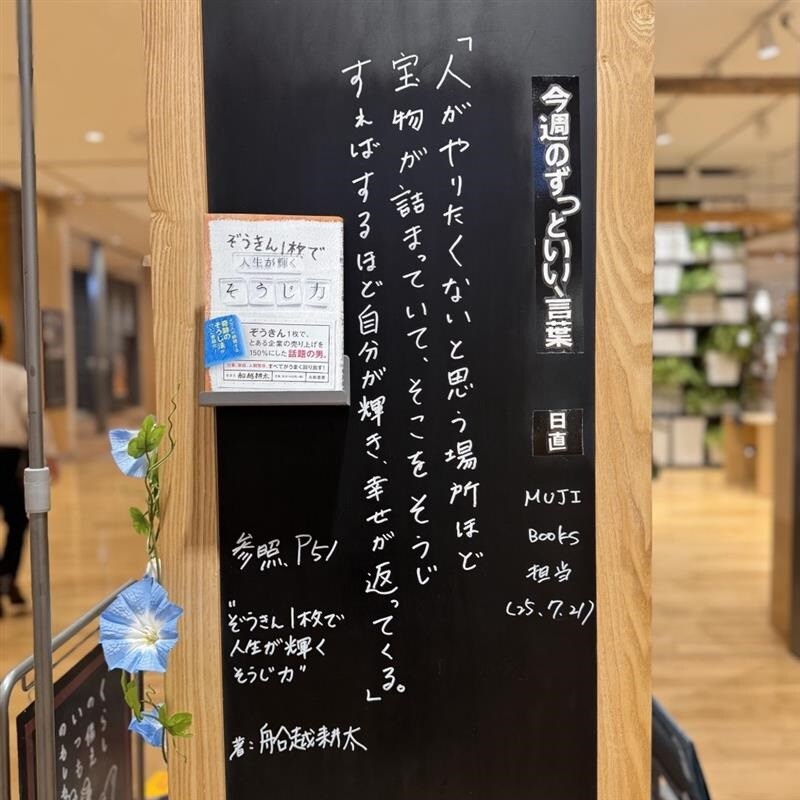 今週のずっといい言葉
日直
MUJI
BOOKS
担当
('25.7.21)
「人がやりたくないと思う場所ほど
宝物が詰まっていて、そこをそうじ
すればするほど自分が輝き、幸せが返ってくる。」
ぞうきん1枚で
人生が輝く
そうじ力
奇跡の
そうじ法
ぞうきん1枚で、
とある企業の売り上げを
150%にした話題の男。
すべてがうまく回り出す!
船越耕太
参照 P51
"ぞうきん1枚で
人生が輝く
そうじ力"
著:船越耕太
くらし
の備忘
いつも
のもしも